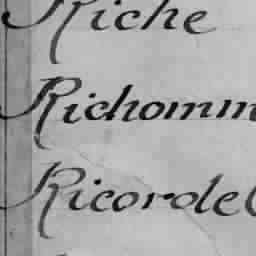 Riche
Richomm
Ricorde